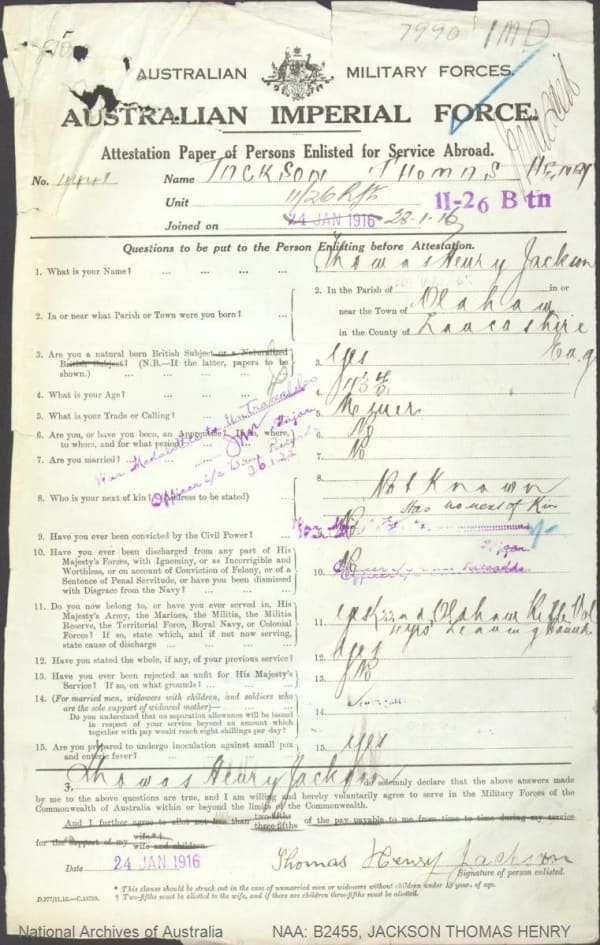 7990 1 M.D
AUSTRALIAN MILITARY FORCES.
AUSTRALIAN IMPERIAL FORCE.
Attestation Paper of Persons Enlisted for Service Abroad.
No. Name JACKSON THOMAS HENRY
Unit 11/26 Rfts 11-26 Btn
Joined on 24 JAN 1916 28-1-16
Questions to be put to the Person Enlisting before Attestation.
1. What is your Name? ... ... ... ... Thomas Henry Jackson
2. In or near what Parish or Town were you born? ...
2. In the Parish of in or
near the Town of Oldham
in the County of Lancashire
3. Are you a natural born British Subject or a Naturalized
British Subject? (N.B.—If the latter, papers to be
shown.) ... ... ... ... 3. Yes
4. What is your Age? ... ... ... ... 4.
5. What is your Trade or Calling? ... ... ... 5. Miner
6. Are you, or have you been, an Apprentice? If so, where,
to whom, and for what period? ... ... 6. No
7. Are you married? ... ... ... ... 7. No
8. Who is your next of kin? (Address to be stated) ... 8. Not Known
Has no next of Kin
9. Have you ever been convicted by the Civil Power? ... No
10. Have you ever been discharged from any part of His
Majesty's Forces, with Ignominy, or as Incorrigible and
Worthless, or on account of Conviction of Felony, or of a
Sentence of Penal Servitude, or have you been dismissed
with Disgrace from the Navy? ... ... ... 10.
11. Do you now belong to, or have you ever served in, His
Majesty's Army, the Marines, the Militia, the Militia
Reserve, the Territorial Force, Royal Navy, or Colonial
Forces? If so, state which, and if not now serving,
state cause of discharge ... ... ... 11. Yes Oldham Rifle Vol
12. Have you stated the whole, if any, of your previous service? 12. Yes
13. Have you ever been rejected as unfit for His Majesty's
Service? If so, on what grounds? ... ... 13. No
14. (For married men, widowers with children, and soldiers who
are the sole support of widowed mother)—
Do you understand that no separation allowance will be issued
in respect of your service beyond an amount which
together with pay would reach eight shillings per day? 14.
15. Are you prepared to undergo inoculation against small pox
and enteric fever? ... ... ... ... 15. Yes
War Medal
Officer i/c Base Records
26.1.22
I, Thomas Henry Jackson do solemnly declare that the above answers made
by me to the above questions are true, and I am willing and hereby voluntarily agree to serve in the Military Forces of the
Commonwealth of Australia within or beyond the limits of the Commonwealth.
And I further agree to allot not less than two-fifths three-fifths of the pay payable to me from time to time during my service
for the support of my wife* † wife and children.
Date 24 JAN 1916 Thomas Henry Jackson
Signature of person enlisted.
* This clause should be struck out in the case of unmarried men or widowers without children under 18 years of age.
† Two-fifths must be allotted to the wife, and if there are children three-fifths must be allotted.
D.877/11.15.—C.15725.
National Archives of Australia NAA: B2455, JACKSON THOMAS HENRY